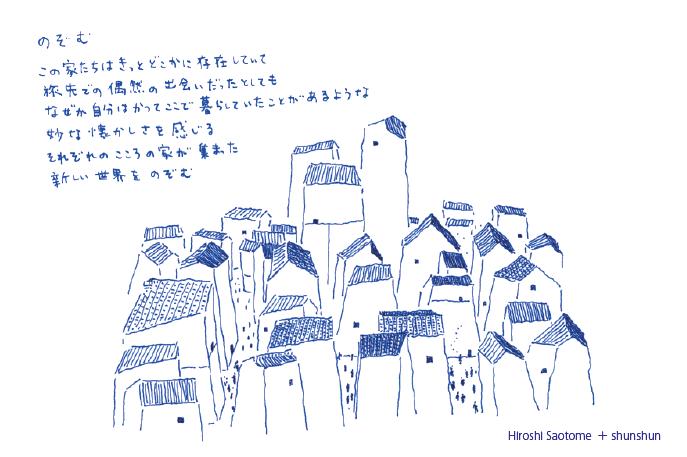 のぞむ
この家たちはきっとどこかに存在していて
旅先での偶然の出会いだったとしても
なぜか自分はかつてここで暮らしていたことがあるような
妙な懐かしさを感じる
それぞれのこころの家が集まった
新しい世界をのぞむ
Hiroshi Saotome + shunshun